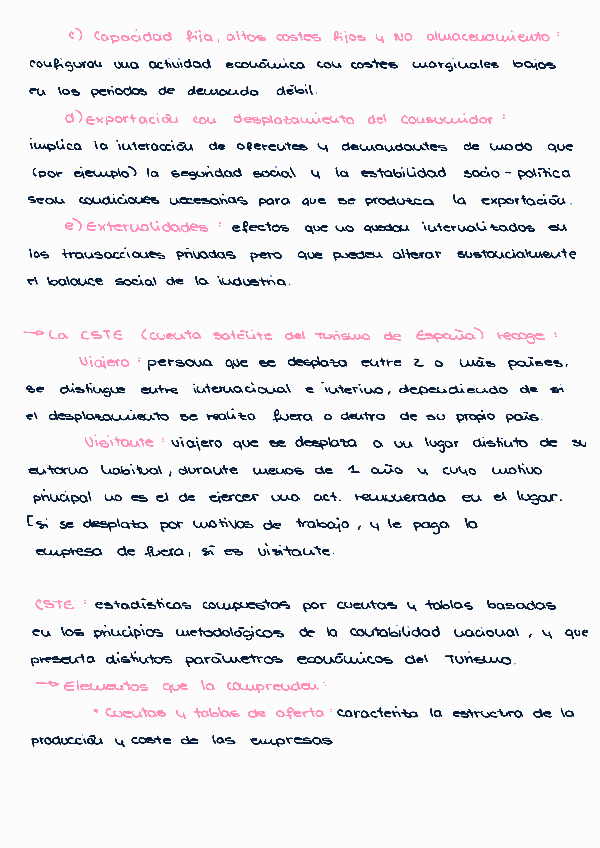 c) Capacidad fija, altos costes fijos y NO almacenamiento :
configuran una actividad económica con costes marginales bajos
en los periodos de demanda débil.
d) Exportación con desplazamiento del consumidor :
implica la interacción de oferentes y demandantes de modo que
(por ejemplo) la seguridad social y la estabilidad socio-política
sean condiciones necesarias para que se produzca la exportación.
e) Externalidades : efectos que no quedan internalizados en
las transacciones privadas pero que pueden alterar sustancialmente
el balance social de la industria.
→ La CSTE (cuenta satélite del Turismo de España) recoge :
Viajero : persona que se desplaza entre 2 o más países,
se distingue entre internacional e interino, dependiendo de si
el desplazamiento se realiza fuera o dentro de su propio país.
Visitante : viajero que se desplaza a un lugar distinto de su
entorno habitual, durante menos de 1 año y cuyo motivo
principal no es el de ejercer una act. remunerada en el lugar.
[si se desplaza por motivos de trabajo, y le paga la
empresa de fuera, sí es visitante.
CSTE : estadísticas compuestas por cuentas y tablas basadas
en los principios metodológicos de la contabilidad nacional, y que
presenta distintos parámetros económicos del Turismo.
→ Elementos que la comprenden :
• Cuentas y tablas de oferta : caracteriza la estructura de la
producción y coste de las empresas